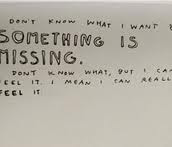 DON'T KNOW WHAT I WANT
SOMETHING IS
MISSING.
DON'T KNOW WHAT, BUT I CAN
FEEL IT. I MEAN I CAN REALLY
FEEL IT